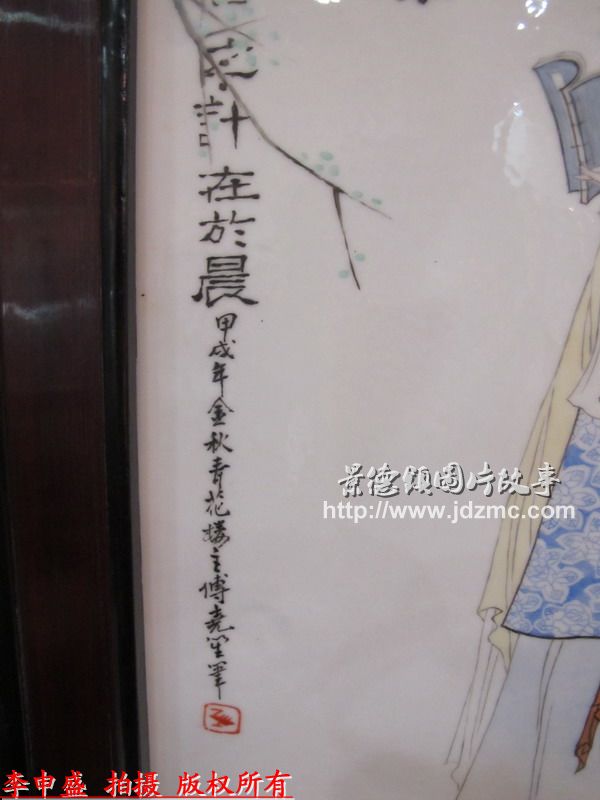 之計在於晨
甲戌年金秋青花楼主傅尧笙筆
景德镇图片故事
http://www.jdzmc.com/
李申盛 拍摄 版权所有